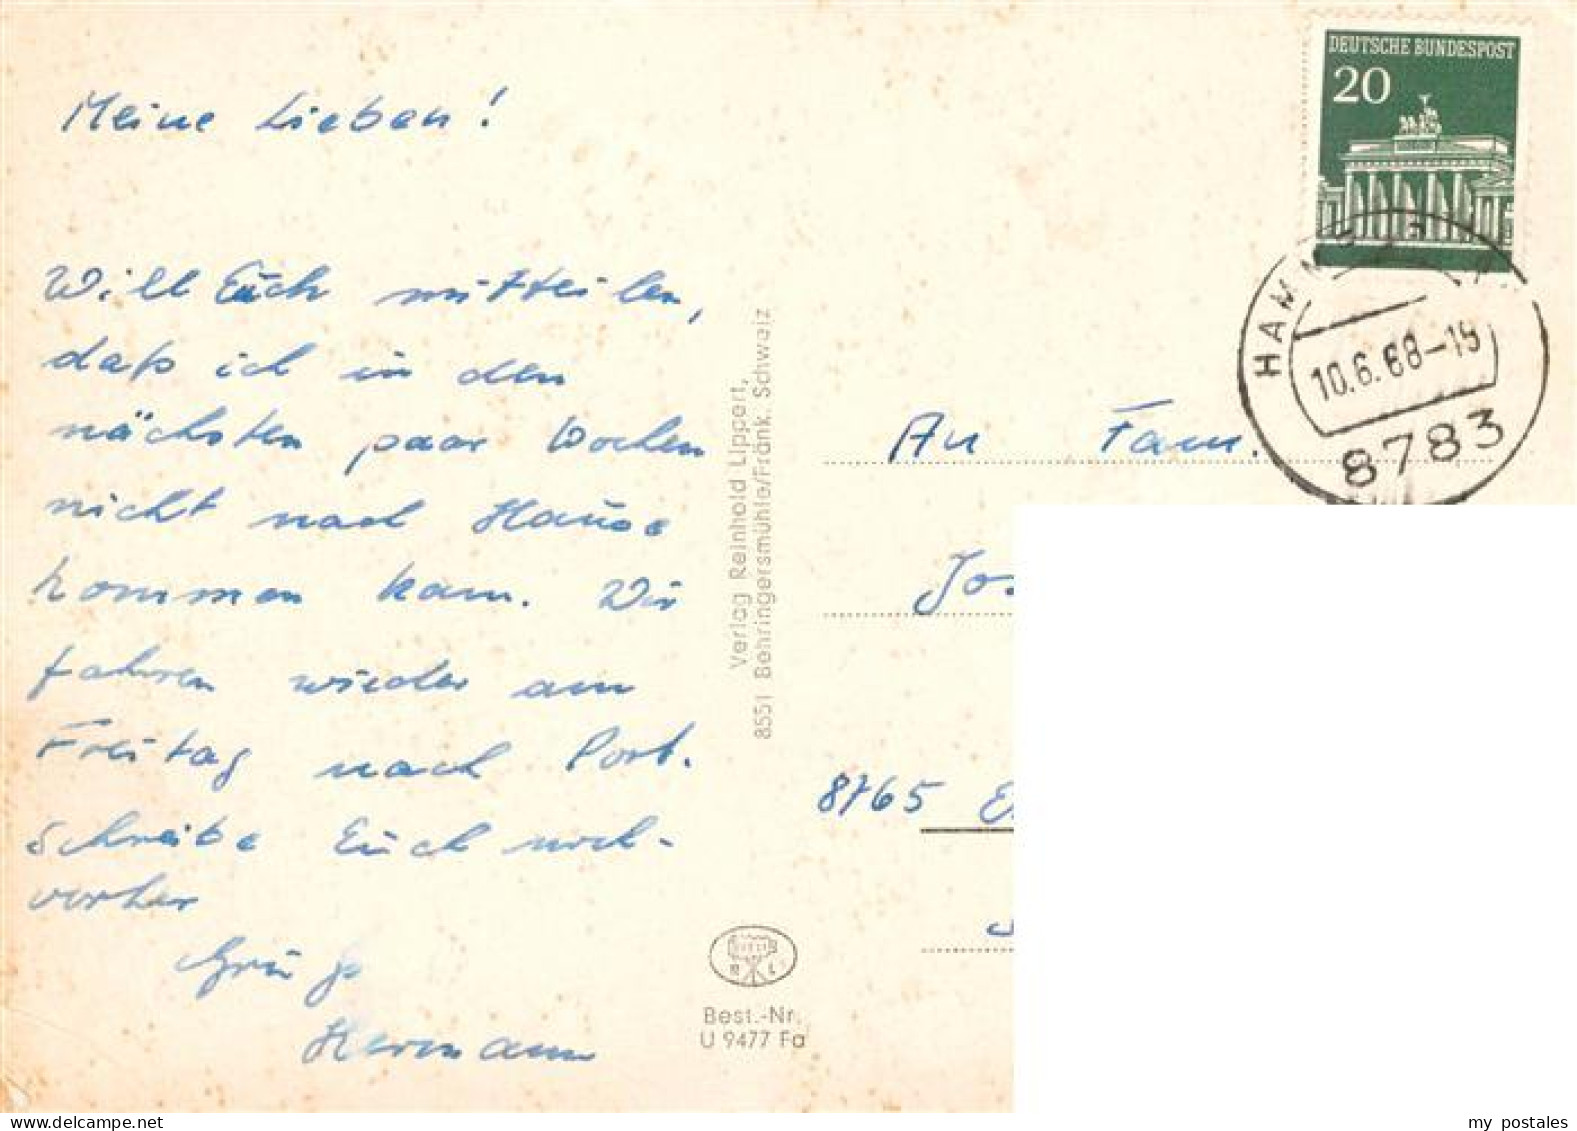 Meine Lieben!
Will Euch mitteilen,
daß ich in den
nächsten paar Wochen
nicht nach Hause
kommen kann. Wir
fahren wieder am
Freitag nach Port.
Schreibe Euch noch-
vorher
Grüße
Hermann
Verlag Reinhold Lippert,
8551 Behringersmühle/Fränk. Schweiz
Best.-Nr.
U 9477 Fa
DEUTSCHE BUNDESPOST
20
10.6.68-19
8783
An Fam.
8765
my postales